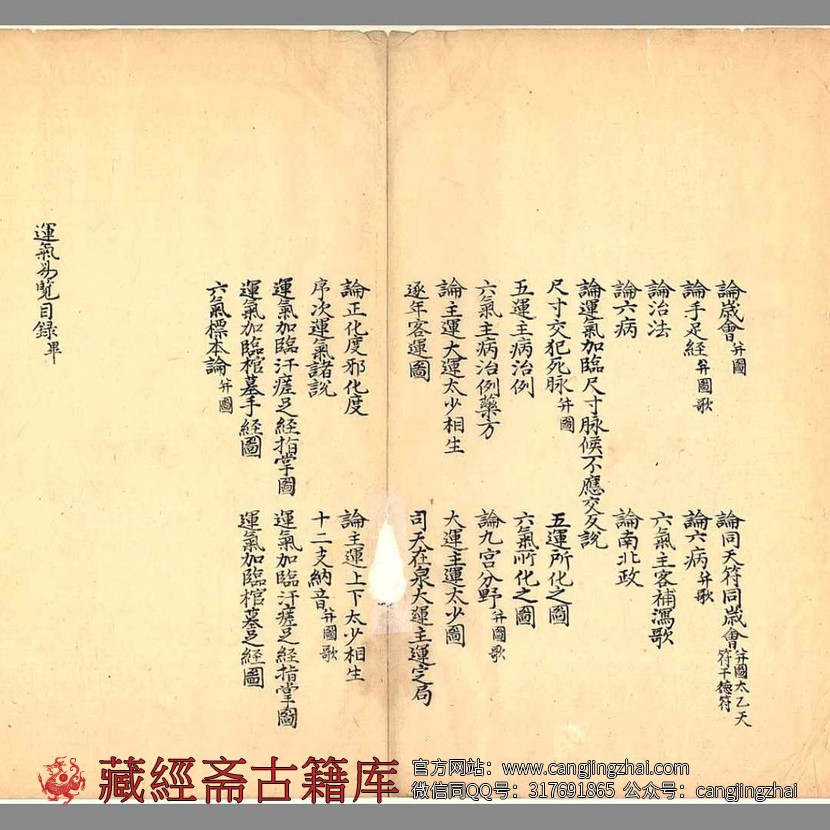 論歲會 并圖
論同天符同歲會 并圖太乙天符干德符
論手足經 并圖歌
論六病 并歌
論治法
六氣主客補瀉歌
論六病
論南北政
論運氣加臨尺寸脉候不應交反説
尺寸交犯死脉 并圖
五運所化之圖
五運主病治例
六氣所化之圖
六氣主病治例藥方
論九宮分野 并圖歌
論主運大運太少相生
大運主運太少圖
逐年客運圖
司天在泉大運主運定局
論正化度邪化度
論主運上下太少相生
序次運氣諸説
十二支納音 并圖歌
運氣加臨汗瘥足經指掌圖
運氣加臨汗瘥足經指掌圖
運氣加臨棺墓手經圖
運氣加臨棺墓足經圖
六氣標本論 并圖
運氣易覧目録畢
藏經斋古籍库
官方网站：www.cangjingzhai.com
微信同QQ号：317691865 公众号：cangjingzhai